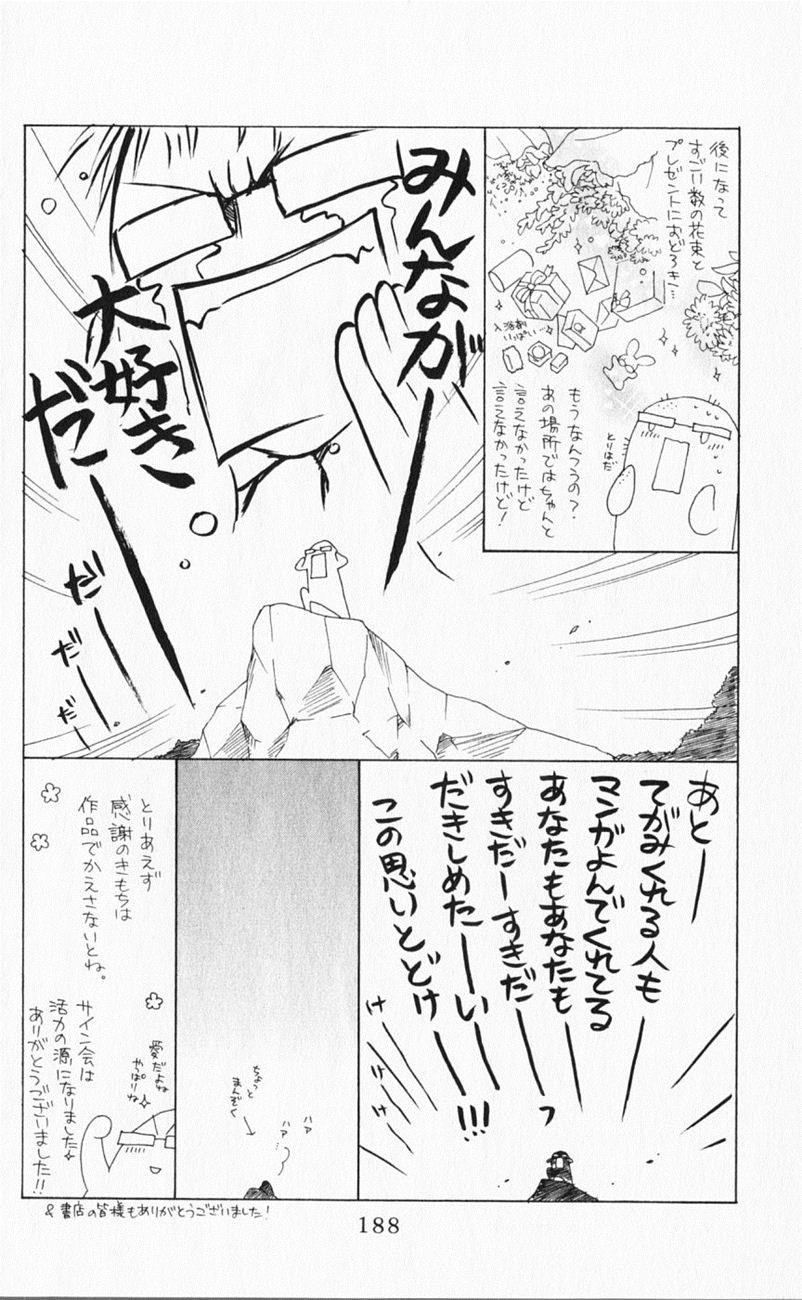 後になって
すごい数の花束と
プレゼントにおどろき…
入浴剤
いっぱい
とりはだ
もうなんつうの?
あの場所ではちゃんと
言えなかったけど
言えなかったけど!
みんながーー
大好き
だーー
だーー
だーー
だーー
あとーー
てがみくれる人も
マンガよんでくれてる
あなたもあなたも
すきだーすきだーーっ
だきしめたーーいーー
この思いとどけーー!!!
けー
けー
けー
ハァ
ハァ
ちょっと
まんぞく
とりあえず
感謝のきもちは
作品でかえさないとね。
愛だよね
やっぱりね
サイン会は
活力の源になりました
ありがとうございました!!
&書店の皆様もありがとうございました!
188